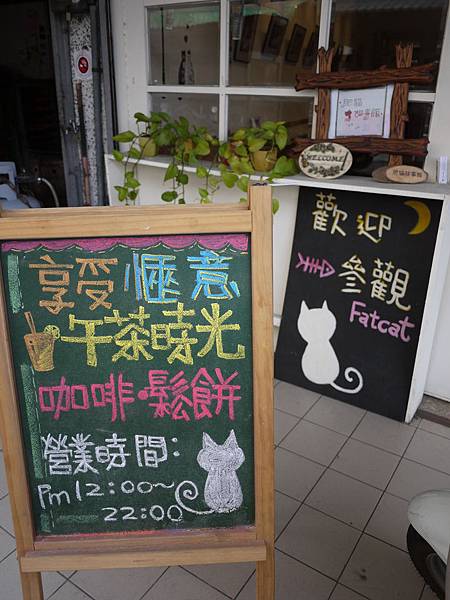 享受愜意
午茶時光
咖啡·鬆餅
營業時間：
Pm 12:00~
22:00
WELCOME
歡迎
參觀
Fatcat